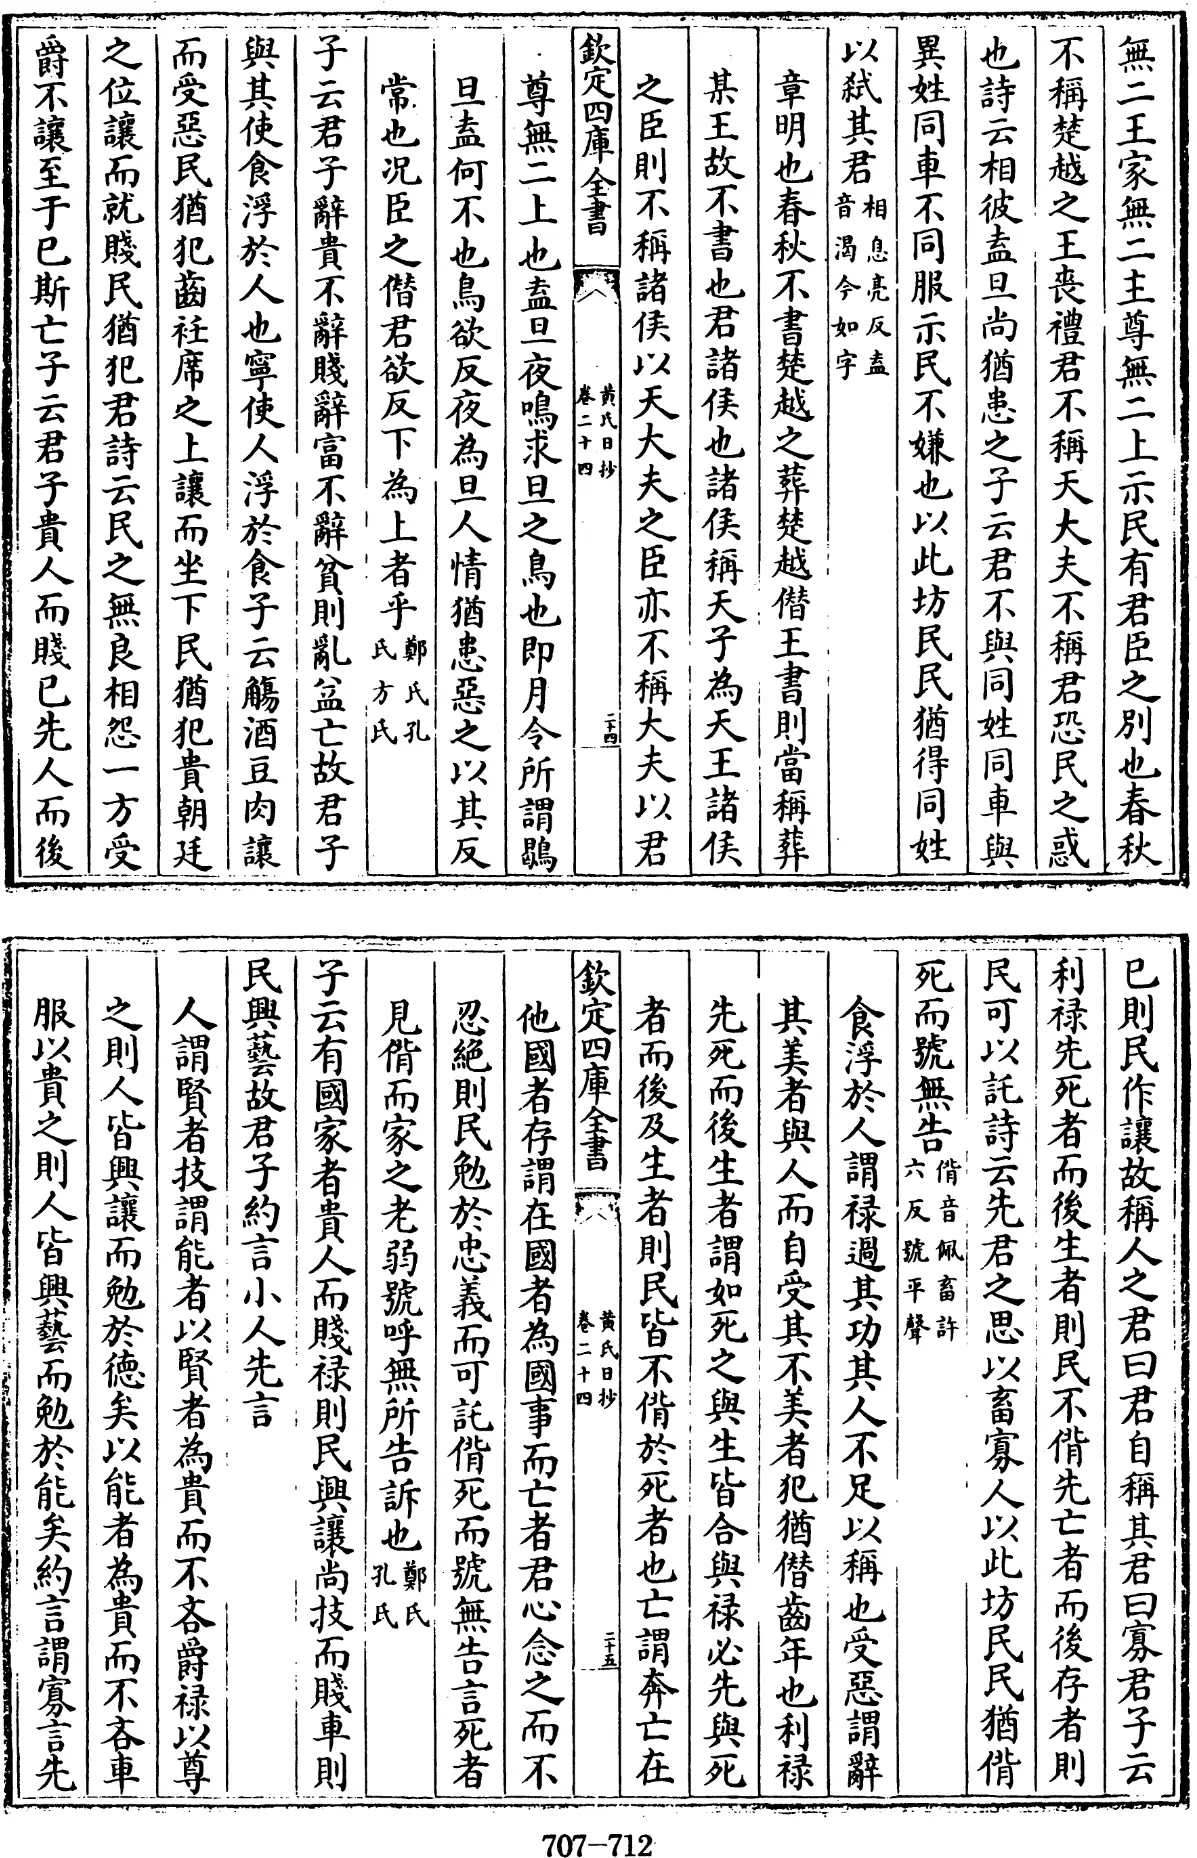 無二王家無二主尊無二上示民有君臣之別也春秋
不稱楚越之王喪禮君不稱天大夫不稱君恐民之惑
也詩云相彼盍旦尚猶患之子云君不與同姓同車與
異姓同車不同服示民不嫌也以此坊民民猶得同姓
以弑其君相息亮反盍音渴今如字
章明也春秋不書楚越之葬楚越僣王書則當稱葬
某王故不書也君諸侯也諸侯稱天子為天王諸侯
之臣則不稱諸侯以天大夫之臣亦不稱大夫以君
欽定四庫全書 黄氏日抄 卷二十四 二十四
尊無二上也盍旦夜鳴求旦之鳥也即月令所謂鶡
旦盍何不也鳥欲反夜為旦人情猶患惡之以其反
常也况臣之僣君欲反下為上者乎鄭氏孔氏方氏
子云君子辭貴不辭賤辭富不辭貧則亂益亡故君子
與其使食浮於人也寧使人浮於食子云觴酒豆肉讓
而受惡民猶犯齒衽席之上讓而坐下民猶犯貴朝廷
之位讓而就賤民猶犯君詩云民之無良相怨一方受
爵不讓至于已斯亡子云君子貴人而賤已先人而後
已則民作讓故稱人之君曰君自稱其君曰寡君子云
利禄先死者而後生者則民不偝先亡者而後存者則
民可以託詩云先君之思以畜寡人以此坊民民猶偝
死而號無告偝音佩畜許六反號平聲
食浮於人謂禄過其功其人不足以稱也受惡謂辭
其美者與人而自受其不美者犯猶僣齒年也利禄
先死而後生者謂如死之與生皆合與禄必先與死
者而後及生者則民皆不偝於死者也亡謂奔亡在
欽定四庫全書 黄氏日抄 卷二十四 二十五
他國者存謂在國者為國事而亡者君心念之而不
忍絶則民勉於忠義而可託偝死而號無告言死者
見偝而家之老弱號呼無所告訴也鄭氏孔氏
子云有國家者貴人而賤禄則民興讓尚技而賤車則
民興藝故君子約言小人先言
人謂賢者技謂能者以賢者為貴而不吝爵禄以尊
之則人皆興讓而勉於德矣以能者為貴而不吝車
服以貴之則人皆興藝而勉於能矣約言謂寡言先
707-712